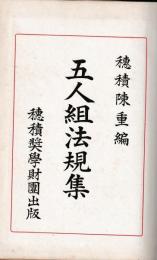 穗積陳重編
五人組法規集
穗積奬學財團出版